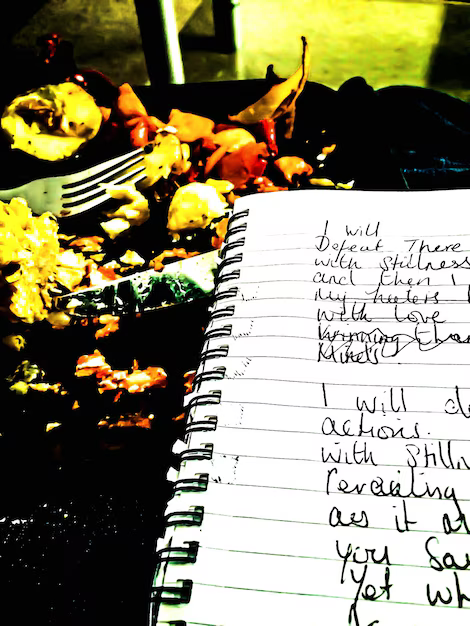 I will
Defeat There
with stillness
and then I
my haters
with love
Winning than
Minds
I will de
actions.
with stilln
revealing
as it at
you Sa
Yet wh